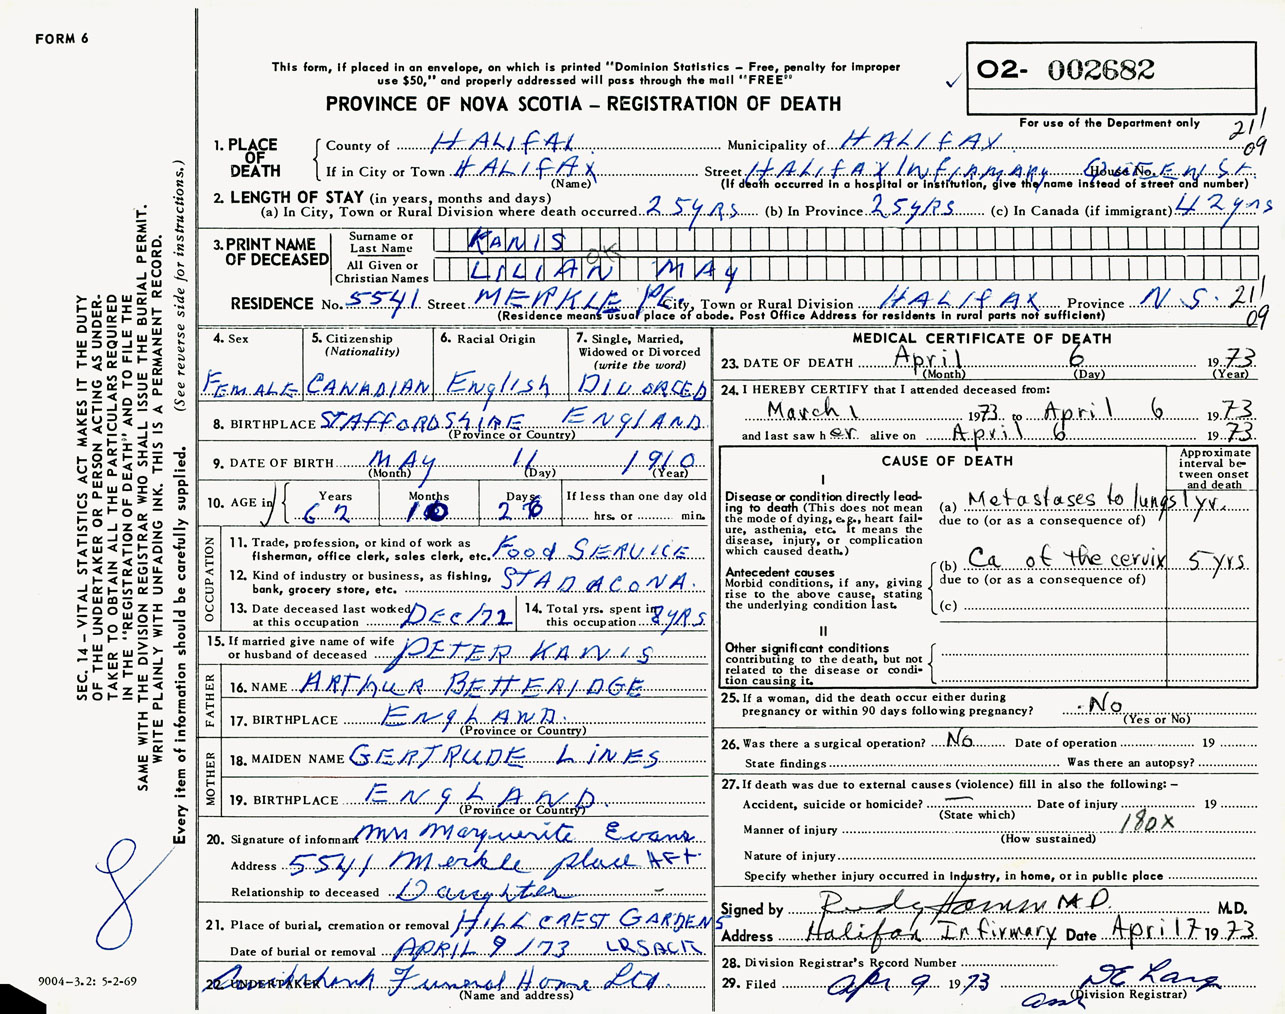 FORM 6
This form, if placed in an envelope, on which is printed "Dominion Statistics – Free, penalty for improper
use $50," and properly addressed will pass through the mail "FREE"
O2- 002682
PROVINCE OF NOVA SCOTIA – REGISTRATION OF DEATH
For use of the Department only
211
09
1. PLACE OF DEATH
County of HALIFAX Municipality of HALIFAX
If in City or Town HALIFAX (Name) Street HALIFAX INFIRMARY House No. QUEEN ST.
(If death occurred in a hospital or institution, give the name instead of street and number)
2. LENGTH OF STAY (in years, months and days)
(a) In City, Town or Rural Division where death occurred 25 yRS (b) In Province 25 yRS (c) In Canada (if immigrant) 42 yrs
3. PRINT NAME OF DECEASED
Surname or Last Name KANIS
OK
All Given or Christian Names LILIAN MAY
RESIDENCE No. 5541 Street MERKLE PL. City, Town or Rural Division HALIFAX Province N.S. 211
09
(Residence means usual place of abode. Post Office Address for residents in rural parts not sufficient)
4. Sex FEMALE
5. Citizenship (Nationality) CANADIAN
6. Racial Origin English
7. Single, Married, Widowed or Divorced (write the word) DIVORCED
8. BIRTHPLACE STAFFORDSHIRE ENGLAND
(Province or Country)
9. DATE OF BIRTH MAY 11 1910
(Month) (Day) (Year)
10. AGE in Years 62 Months 10 Days 26 If less than one day old
hrs. or min.
OCCUPATION
11. Trade, profession, or kind of work as
fisherman, office clerk, sales clerk, etc. Food SERVICE
12. Kind of industry or business, as fishing,
bank, grocery store, etc. STADACONA.
13. Date deceased last worked
at this occupation DEC/72
14. Total yrs. spent in
this occupation 8 YRS.
15. If married give name of wife
or husband of deceased PETER KANIS
FATHER
16. NAME ARTHUR BETTERIDGE
17. BIRTHPLACE ENGLAND.
(Province or Country)
MOTHER
18. MAIDEN NAME GERTRUDE LINES
19. BIRTHPLACE ENGLAND.
(Province or Country)
20. Signature of informant Mrs Marguerite Evans
Address 5541 Merkle place HFX
Relationship to deceased Daughter
21. Place of burial, cremation or removal HILLCREST GARDENS
Date of burial or removal APRIL 9/73
22. UNDERTAKER Cruikshank Funeral Home Ltd.
(Name and address)
MEDICAL CERTIFICATE OF DEATH
23. DATE OF DEATH April 6 1973
(Month) (Day) (Year)
24. I HEREBY CERTIFY that I attended deceased from:
March 1 1973 to April 6 1973
and last saw her alive on April 6 1973
CAUSE OF DEATH
Approximate interval between onset and death
I
Disease or condition directly leading to death (This does not mean the mode of dying, e.g., heart failure, asthenia, etc. It means the disease, injury, or complication which caused death.)
(a) Metastases to lungs 1 yr.
due to (or as a consequence of)
Antecedent causes
Morbid conditions, if any, giving rise to the above cause, stating the underlying condition last.
(b) Ca of the cervix 5 yrs
due to (or as a consequence of)
(c)
II
Other significant conditions
contributing to the death, but not related to the disease or condition causing it.
25. If a woman, did the death occur either during
pregnancy or within 90 days following pregnancy? No
(Yes or No)
26. Was there a surgical operation? No Date of operation 19
State findings Was there an autopsy?
27. If death was due to external causes (violence) fill in also the following: –
Accident, suicide or homicide? — Date of injury 19
(State which)
Manner of injury 180X
(How sustained)
Nature of injury
Specify whether injury occurred in industry, in home, or in public place
Signed by M.D. M.D.
Address Halifax Infirmary Date April 7 1973
28. Division Registrar's Record Number
29. Filed Apr 9 1973
(Division Registrar)
SEC. 14 – VITAL STATISTICS ACT MAKES IT THE DUTY
OF THE UNDERTAKER OR PERSON ACTING AS UNDER-
TAKER TO OBTAIN ALL THE PARTICULARS REQUIRED
IN THE "REGISTRATION OF DEATH" AND TO FILE THE
SAME WITH THE DIVISION REGISTRAR WHO SHALL ISSUE THE BURIAL PERMIT.
WRITE PLAINLY WITH UNFADING INK. THIS IS A PERMANENT RECORD.
Every item of information should be carefully supplied. (See reverse side for instructions.)
8
9004–3.2: 5-2-69